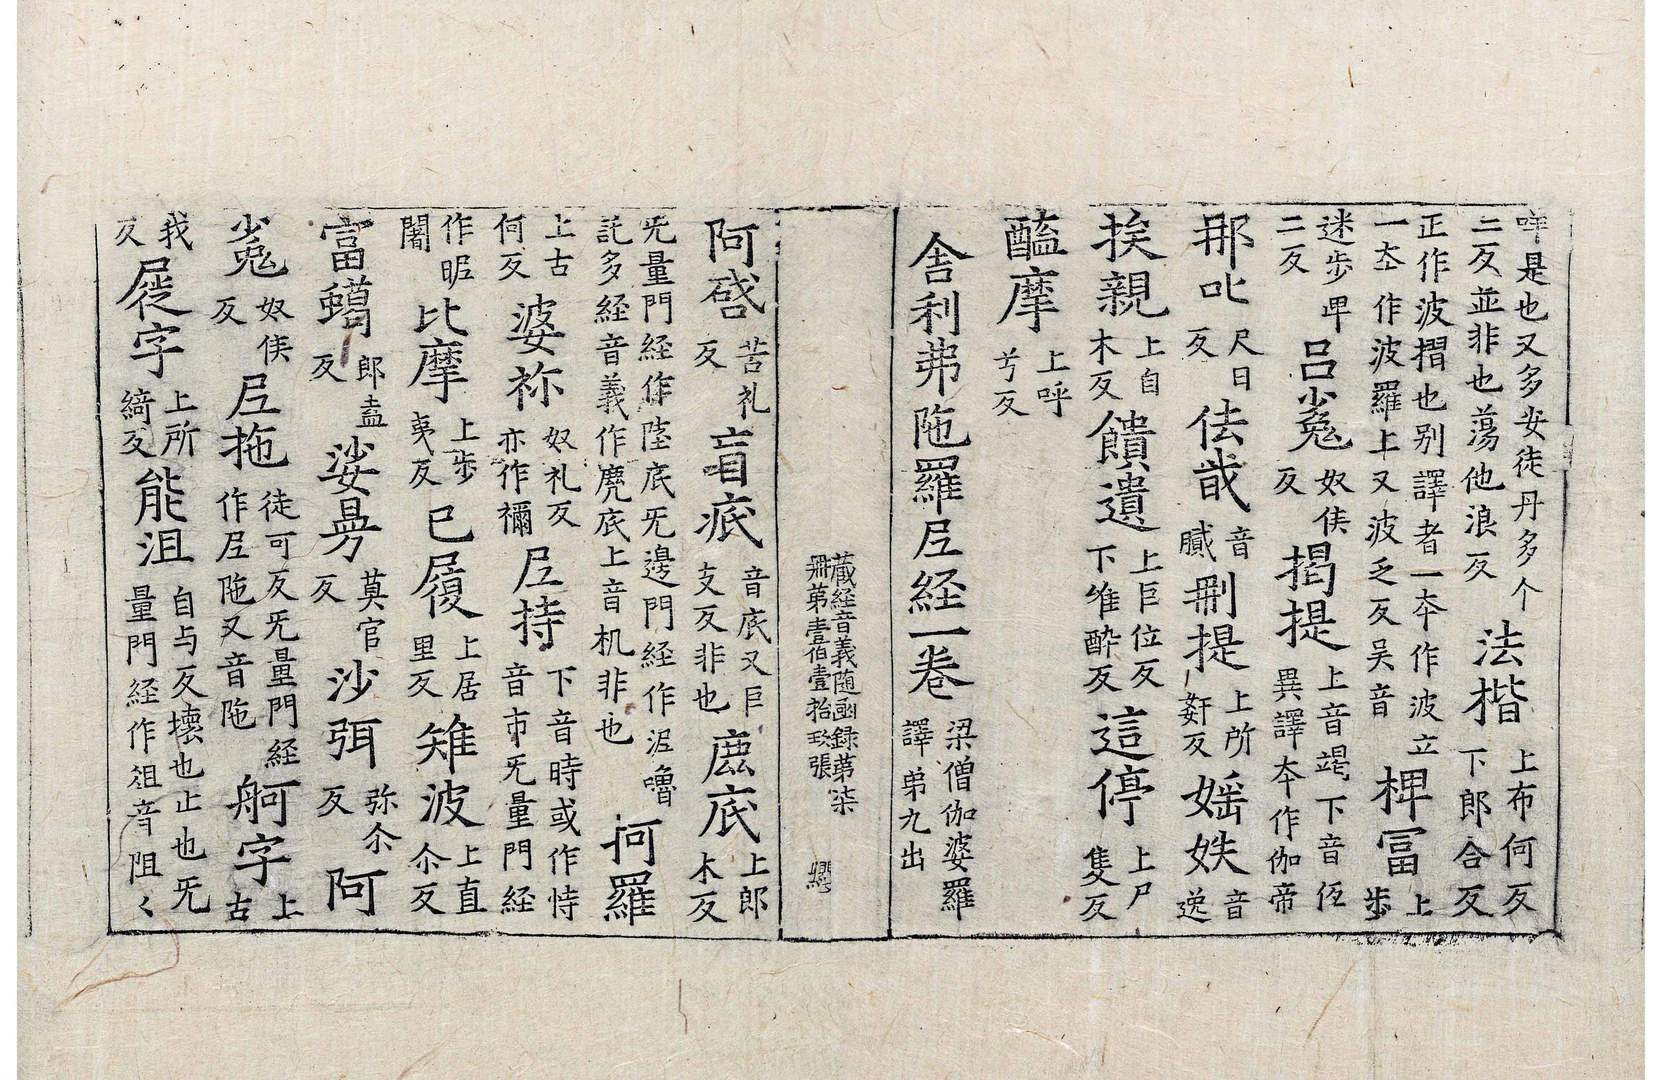 呼是也又多安徒丹多个二反並非也蕩他浪反法楷上布何反下郎合反
正作波摺也別譯者一夲作波立一夲作波羅上又波乏反吴音椑冨上步
迷步畀二反吕㝹奴侯反揭提上音竭下音伍異譯夲作伽帝
那叱尺日反佉䟦音膩刪提上所姧反媱妷音逸
挨親上自木反饋遺上巨位反下维醉反這停上尸隻反
醯摩上呼兮反
舎利弗陁羅𡰱経一卷梁僧伽婆羅譯弟九出
蔵経音義随函録苐柒
冊苐壹伯壹拾玖張
阿啓苦礼反盲疷音底又巨支反非也𢉖底上郎木反
无量門経作陸底无邊門経作泥嚕託多経音義作麂底上音机非也柯羅
上古何反婆祢奴礼反亦作禰𡰱持下音時或作恃音市无量門経
作昵闍比摩上步夷反已履上居里反雉波上直尒反
富蠍郎盍反娑㝠莫官反沙弭弥尒反阿
㝹奴侯反𡰱拖徒可反无量門経作𡰱陁又音陁舸字上古
我反屣字上所綺反能沮自与反壊也止也无量門経作俎音阻〻